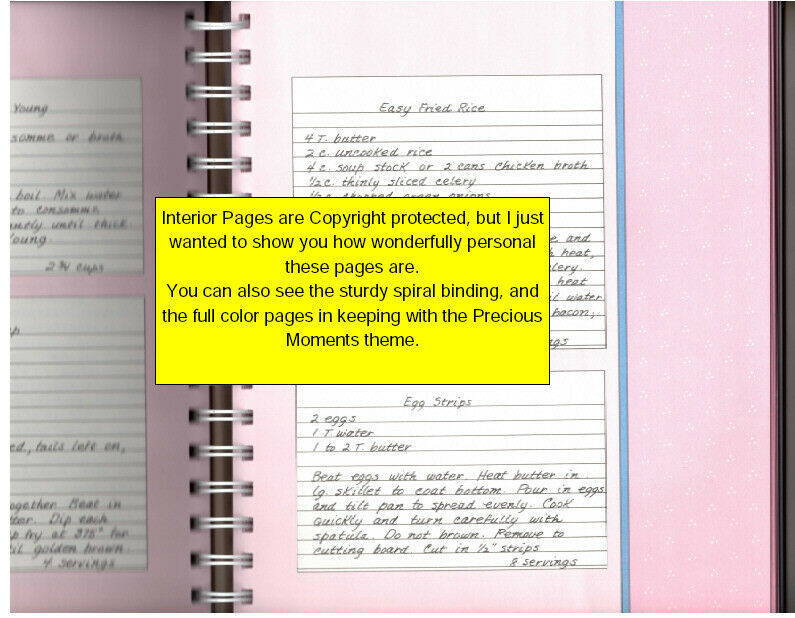 Young
somme or broth
boil. Mix water
to consomme.
ntly until thick.
oung.
2¾ cups
p
ed, tails left on,
ogether. Beat in
tter. Dip each
p fry at 375° for
il golden brown.
4 servings
Easy Fried Rice
4 T. butter
2 c. uncooked rice
4 c. soup stock or 2 cans chicken broth
½ c. thinly sliced celery
½ c. chopped green onions
e and
heat,
lery.
heat
il water
bacon,
ngs
Interior Pages are Copyright protected, but I just
wanted to show you how wonderfully personal
these pages are.
You can also see the sturdy spiral binding, and
the full color pages in keeping with the Precious
Moments theme.
Egg Strips
2 eggs
1 T. water
1 to 2 T. butter
Beat eggs with water. Heat butter in
lg. skillet to coat bottom. Pour in eggs
and tilt pan to spread evenly. Cook
quickly and turn carefully with
spatula. Do not brown. Remove to
cutting board. Cut in ½" strips
8 servings